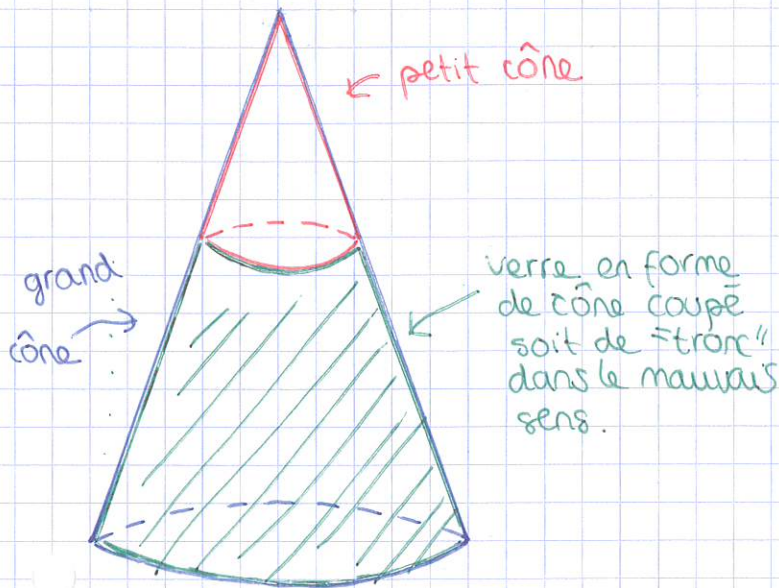 petit cône
grand
cône
verre en forme
de cône coupé
soit de "tronc"
dans le mauvais
sens.